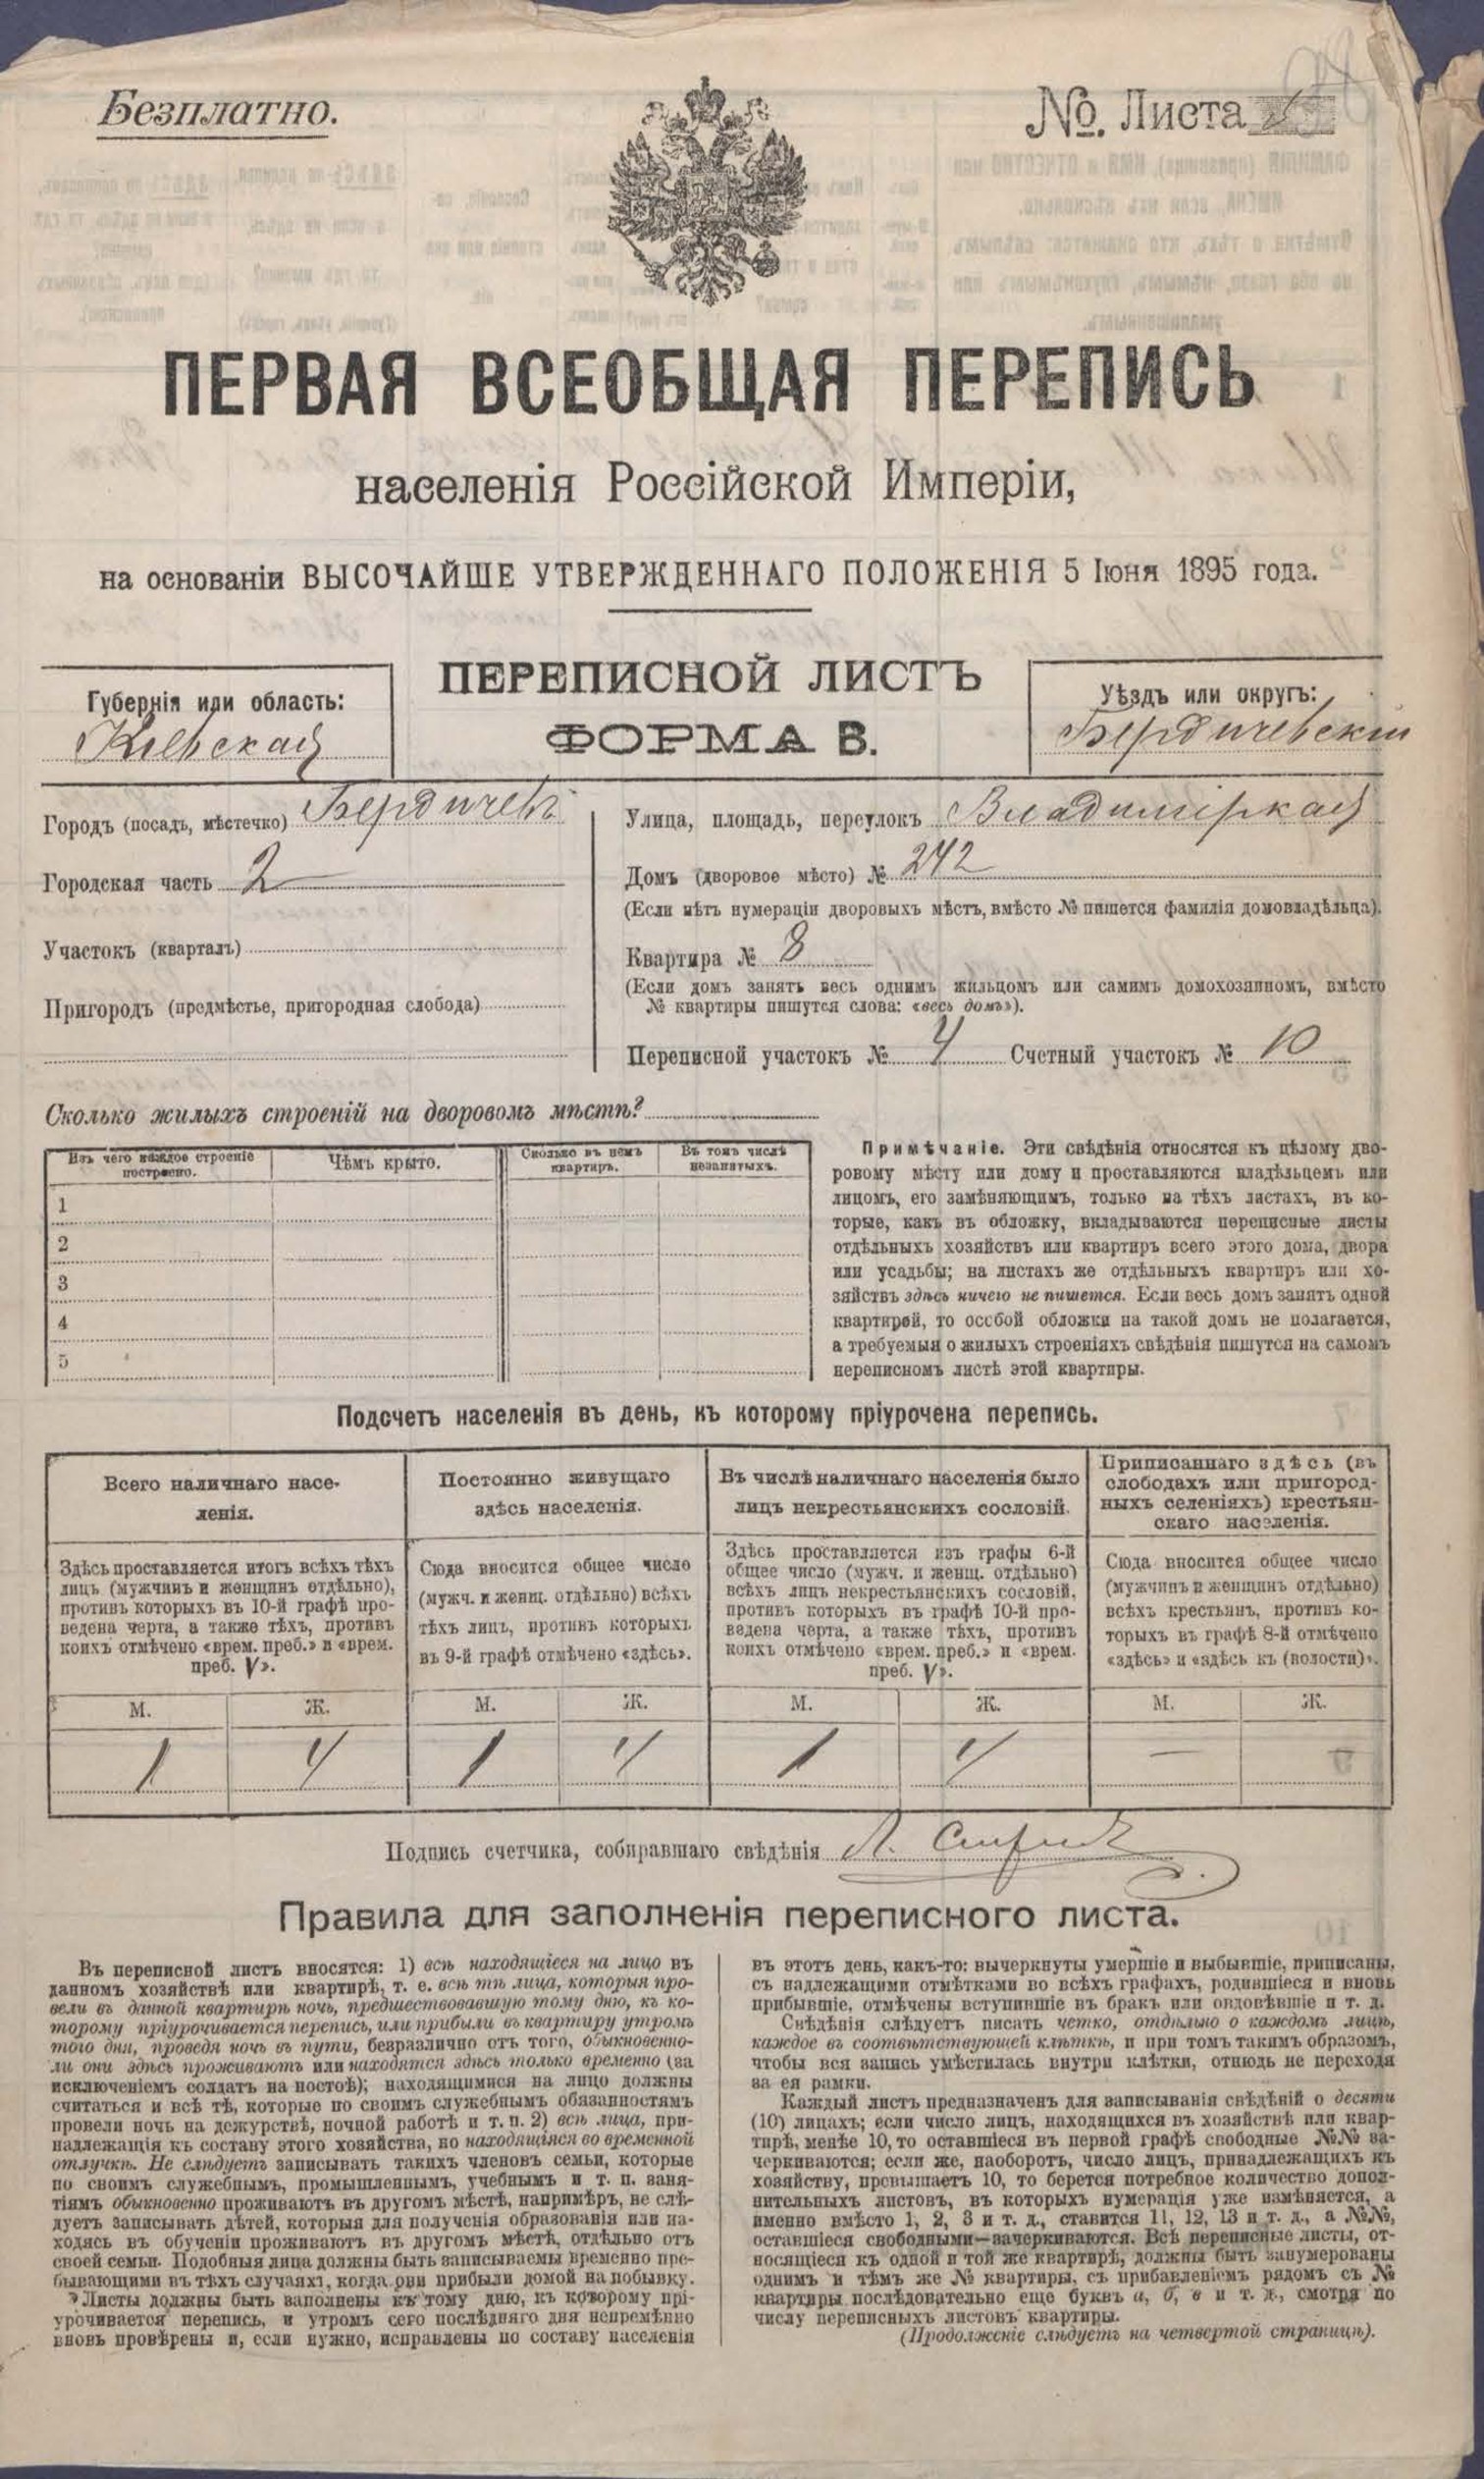 Безплатно.
№. Листа
ПЕРВАЯ ВСЕОБЩАЯ ПЕРЕПИСЬ
населенія Россійской Имперіи,
на основаніи ВЫСОЧАЙШЕ УТВЕРЖДЕННАГО ПОЛОЖЕНІЯ 5 Іюня 1895 года.
Губернія или область:
Кіевская
ПЕРЕПИСНОЙ ЛИСТЪ
ФОРМА В.
Уѣздъ или округъ:
Бердичевскій
Городъ (посадъ, мѣстечко) Бердичевъ
Городская часть 2
Участокъ (кварталъ)
Пригородъ (предмѣстье, пригородная слобода)
Улица, площадь, переулокъ Владимірская
Домъ (дворовое мѣсто) № 242
(Если нѣтъ нумераціи дворовыхъ мѣстъ, вмѣсто № пишется фамилія домовладѣльца).
Квартира № 8
(Если домъ занятъ весь однимъ жильцомъ или самимъ домохозяиномъ, вмѣсто
№ квартиры пишутся слова: «весь домъ»).
Переписной участокъ № 4 Счетный участокъ № 10
Сколько жилыхъ строеній на дворовомъ мѣстѣ?
Изъ чего каждое строеніе
построено.
Чѣмъ крыто.
Сколько въ немъ
квартиръ.
Въ томъ числѣ
незанятыхъ.
1
2
3
4
5
Примѣчаніе. Эти свѣдѣнія относятся къ цѣлому дво-
ровому мѣсту или дому и проставляются владѣльцемъ или
лицомъ, его замѣняющимъ, только на тѣхъ листахъ, въ ко-
торые, какъ въ обложку, вкладываются переписные листы
отдѣльныхъ хозяйствъ или квартиръ всего этого дома, двора
или усадьбы; на листахъ же отдѣльныхъ квартиръ или хо-
зяйствъ здѣсь ничего не пишется. Если весь домъ занятъ одной
квартирой, то особой обложки на такой домъ не полагается,
а требуемыя о жилыхъ строеніяхъ свѣдѣнія пишутся на самомъ
переписномъ листѣ этой квартиры.
Подсчетъ населенія въ день, къ которому пріурочена перепись.
Всего наличнаго насе-
ленія.
Здѣсь проставляется итогъ всѣхъ тѣхъ
лицъ (мужчинъ и женщинъ отдѣльно),
противъ которыхъ въ 10-й графѣ про-
ведена черта, а также тѣхъ, противъ
коихъ отмѣчено «врем. преб.» и «врем.
преб. V».
М. Ж.
1 4
Постоянно живущаго
здѣсь населенія.
Сюда вносится общее число
(мужч. и женщ. отдѣльно) всѣхъ
тѣхъ лицъ, противъ которыхъ
въ 9-й графѣ отмѣчено «здѣсь».
М. Ж.
1 4
Въ числѣ наличнаго населенія было
лицъ некрестьянскихъ сословій.
Здѣсь проставляется изъ графы 6-й
общее число (мужч. и женщ. отдѣльно)
всѣхъ лицъ некрестьянскихъ сословій,
противъ которыхъ въ графѣ 10-й про-
ведена черта, а также тѣхъ, противъ
коихъ отмѣчено «врем. преб.» и «врем.
преб. V».
М. Ж.
1 4
Приписаннаго здѣсь (въ
слободахъ или пригород-
ныхъ селеніяхъ) крестьян-
скаго населенія.
Сюда вносится общее число
(мужчинъ и женщинъ отдѣльно)
всѣхъ крестьянъ, противъ ко-
торыхъ въ графѣ 8-й отмѣчено
«здѣсь» и «здѣсь къ (волости)».
М. Ж.
— —
Подпись счетчика, собиравшаго свѣдѣнія
Правила для заполненія переписного листа.
Въ переписной листъ вносятся: 1) всѣ находящіеся на лицо въ
данномъ хозяйствѣ или квартирѣ, т. е. всѣ тѣ лица, которыя про-
вели въ данной квартирѣ ночь, предшествовавшую тому дню, къ ко-
торому пріурочивается перепись, или прибыли въ квартиру утромъ
того дня, проведя ночь въ пути, безразлично отъ того, обыкновенно-
ли они здѣсь проживаютъ или находятся здѣсь только временно (за
исключеніемъ солдатъ на постоѣ); находящимися на лицо должны
считаться и всѣ тѣ, которые по своимъ служебнымъ обязанностямъ
провели ночь на дежурствѣ, ночной работѣ и т. п. 2) всѣ лица, при-
надлежащія къ составу этого хозяйства, но находящіяся во временной
отлучкѣ. Не слѣдуетъ записывать такихъ членовъ семьи, которые
по своимъ служебнымъ, промышленнымъ, учебнымъ и т. п. заня-
тіямъ обыкновенно проживаютъ въ другомъ мѣстѣ, напримѣръ, не слѣ-
дуетъ записывать дѣтей, которыя для полученія образованія или на-
ходясь въ обученіи проживаютъ въ другомъ мѣстѣ, отдѣльно отъ
своей семьи. Подобныя лица должны быть записываемы временно пре-
бывающими въ тѣхъ случаяхъ, когда они прибыли домой на побывку.
Листы должны быть заполнены къ тому дню, къ которому прі-
урочивается перепись, и утромъ сего послѣдняго дня непремѣнно
вновь провѣрены и, если нужно, исправлены по составу населенія
въ этотъ день, какъ-то: вычеркнуты умершіе и выбывшіе, приписаны,
съ надлежащими отмѣтками во всѣхъ графахъ, родившіеся и вновь
прибывшіе, отмѣчены вступившіе въ бракъ или овдовѣвшіе и т. д.
Свѣдѣнія слѣдуетъ писать четко, отдѣльно о каждомъ лицѣ,
каждое въ соотвѣтствующей клѣткѣ, и при томъ такимъ образомъ,
чтобы вся запись умѣстилась внутри клѣтки, отнюдь не переходя
за ея рамки.
Каждый листъ предназначенъ для записыванія свѣдѣній о десяти
(10) лицахъ; если число лицъ, находящихся въ хозяйствѣ или квар-
тирѣ, менѣе 10, то оставшіеся въ первой графѣ свободные №№ за-
черкиваются; если же, наоборотъ, число лицъ, принадлежащихъ къ
хозяйству, превышаетъ 10, то берется потребное количество допол-
нительныхъ листовъ, въ которыхъ нумерація уже измѣняется, а
именно вмѣсто 1, 2, 3 и т. д., ставится 11, 12, 13 и т. д., а №№,
оставшіеся свободными—зачеркиваются. Всѣ переписные листы, от-
носящіеся къ одной и той же квартирѣ, должны быть занумерованы
однимъ и тѣмъ же № квартиры, съ прибавленіемъ рядомъ съ №
квартиры послѣдовательно еще буквъ а, б, в и т. д., смотря по
числу переписныхъ листовъ квартиры.
(Продолженіе слѣдуетъ на четвертой страницѣ).